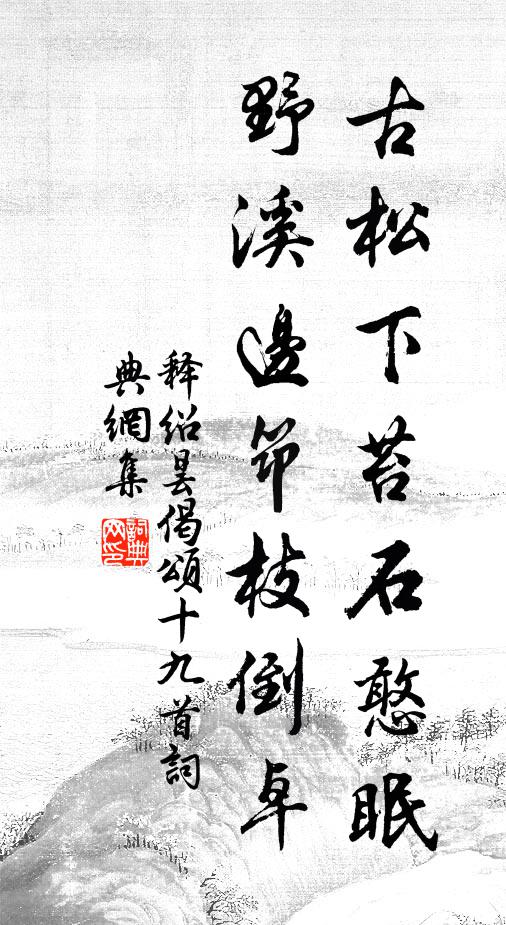 古松下苔石憨眠
野溪邊笻枝倒卓
释绍昙偈頌十九首詞
典網集
詞典
网印